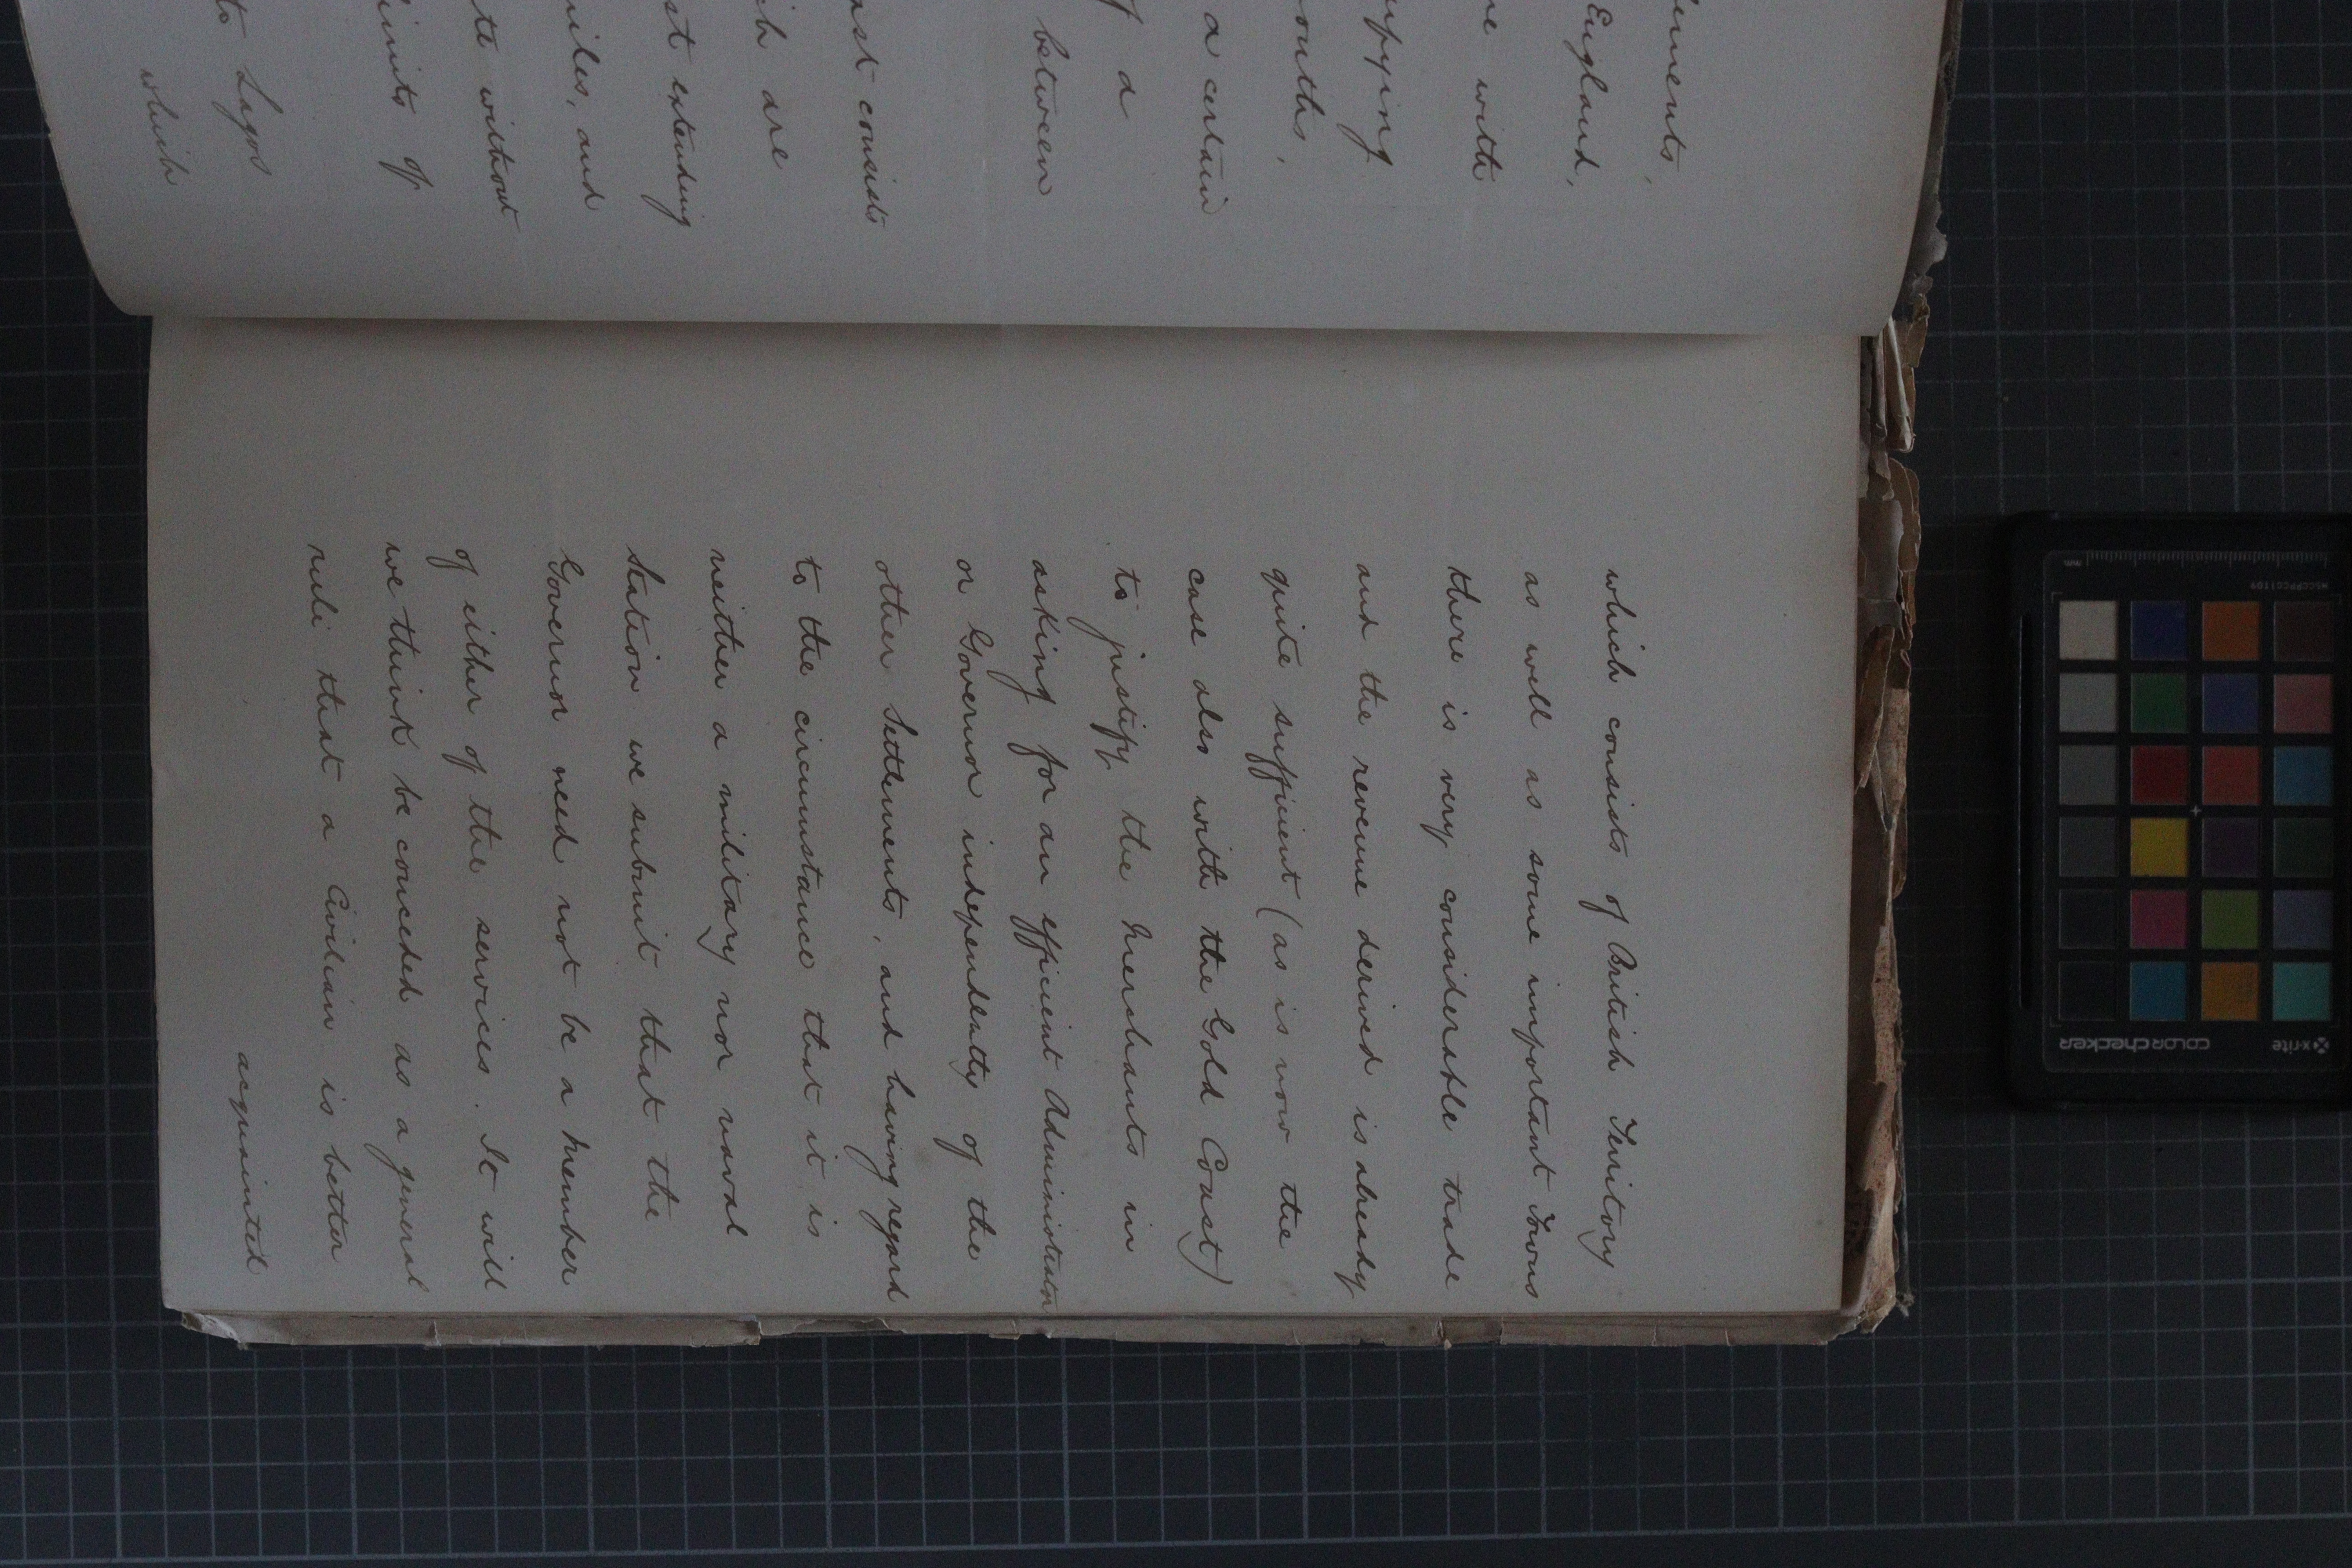 ements,
England,
e with
upying
ouths,
a certain
f a
between
ast consists
ich are
st extending
miles, and
te without
limits of
to Lagos
which
which consists of British Territory
as well as some important Towns
there is very considerable trade
and the revenue derived is already
quite sufficient (as is now the
case also with the Gold Coast)
to justify the Merchants in
asking for an efficient Administrator
or Governor independently of the
other Settlements, and having regard
to the circumstance that it is
neither a military nor naval
Station we submit that the
Governor need not be a Member
of either of the services. It will
we think be conceded as a general
rule that a Civilian is better
acquainted
mm
MSCCPPCC1109
x-rite
colorchecker